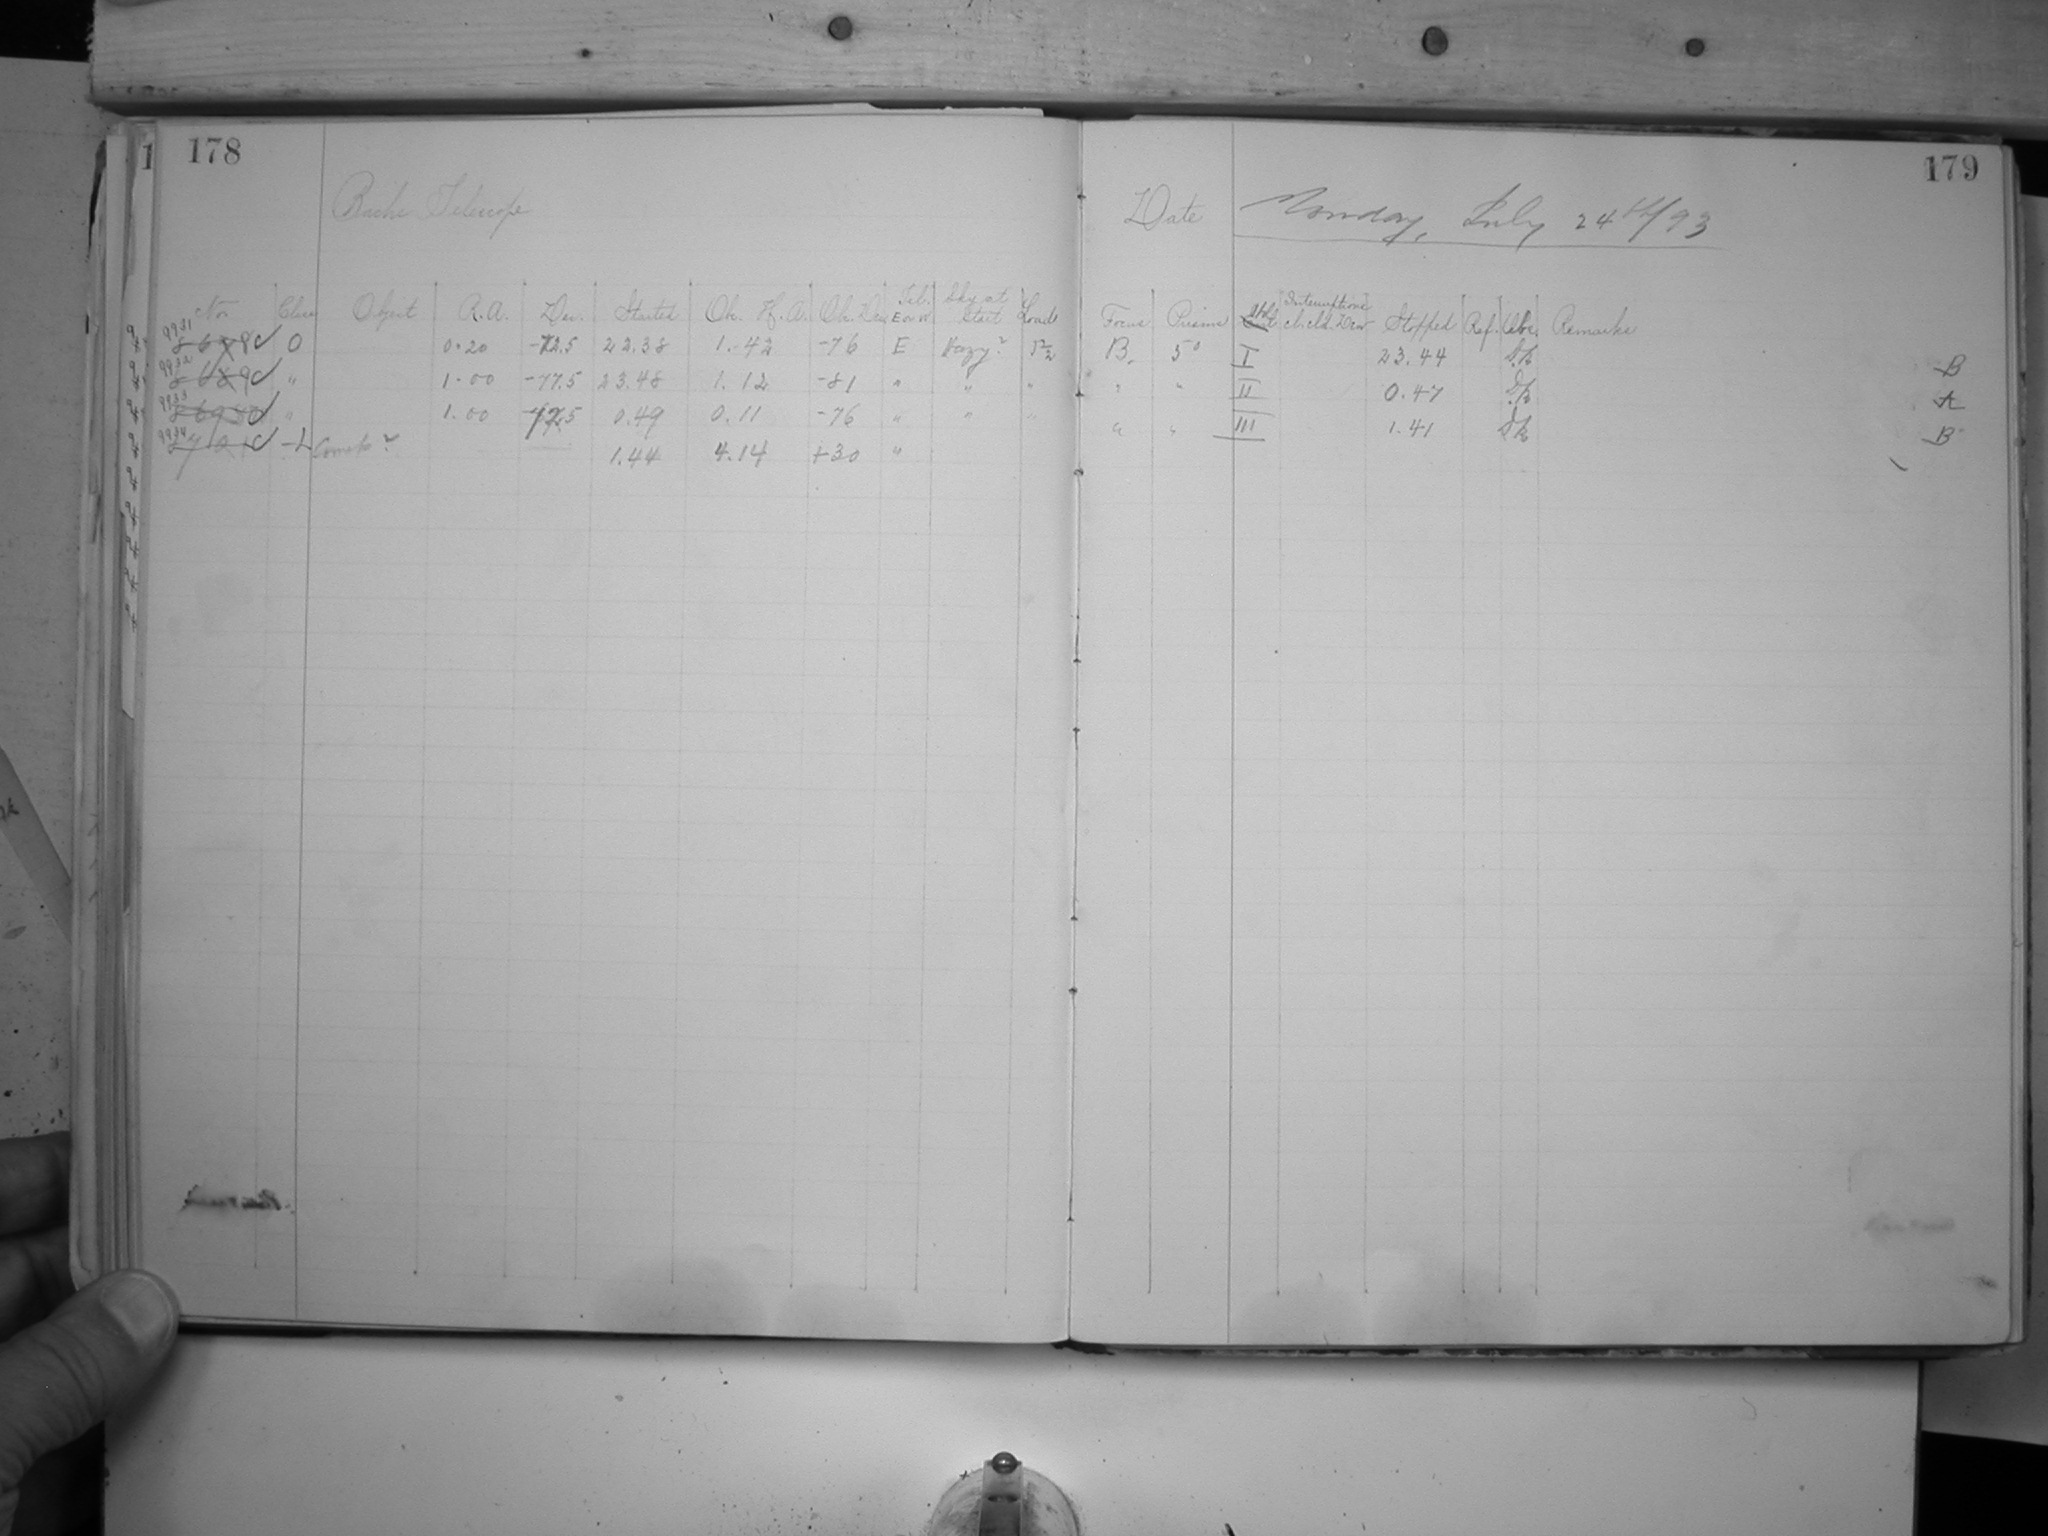 178
Bache Telescope
No. Class Object R.A. Dec. Started Ob. H.A. Ob. Dec. Tel. E or W Sky at Start Loads
9931 O 0.20 -72.5 22.38 1.-42 -76 E Hazy?
9932 " 1.00 -77.5 23.48 1.12 -81 " " "
9933 " 1.00 0.49 0.11 -76 " " "
9934 -L Comets? 1.44 4.14 +30 "
179
Date Monday, July 24th/93
Focus Prisms Interruptions Stopped Ref. Obs. Remarks
B. 5° I 23.44 B
" " II 0.47 A
" " III 1.41 B